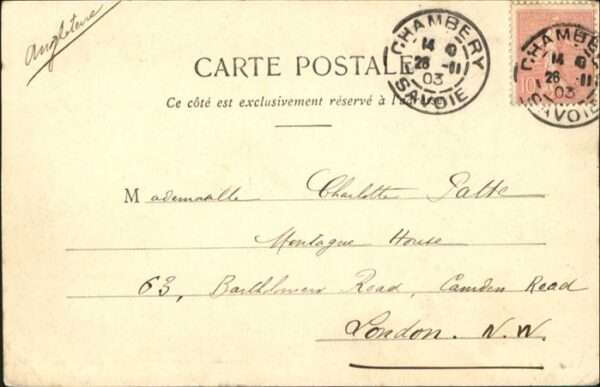 Angleterre
CHAMBERY
14
26 -11
03
SAVOIE
CHAMBERY
14
26 -11
03
SAVOIE
10
CARTE POSTALE
Ce côté est exclusivement réservé à l'adresse
Mademoiselle Charlotte
Montague House
63, Bartholomew Road, Camden Road
London. N.W.